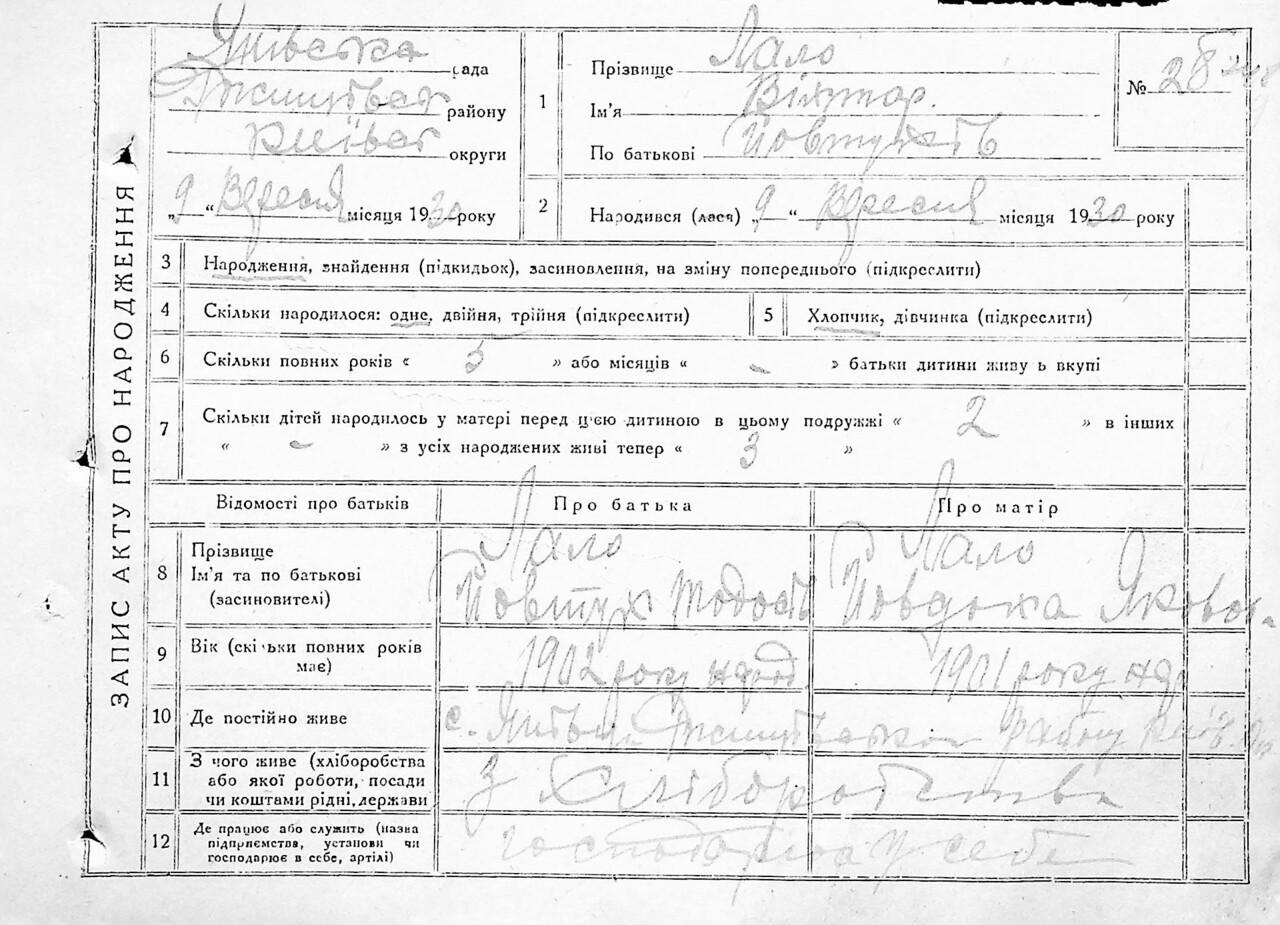 ЗАПИС АКТУ ПРО НАРОДЖЕННЯ
сада
району
округи
„ 9 “ Вересня місяця 1930 року
1
Прізвище Лало
Ім'я Віктор.
По батькові
№ 28
2
Народився (лася) „ 9 “ Вересня місяця 1930 року
3 Народження, знайдення (підкидьок), засиновлення, на зміну попереднього (підкреслити)
4 Скільки народилося: одне, двійня, трійня (підкреслити) 5 Хлопчик, дівчинка (підкреслити)
6 Скільки повних років « 5 » або місяців « – » батьки дитини живу ь вкупі
7 Скільки дітей народилось у матері перед ц'єю дитиною в цьому подружжі « 2 » в інших
« – » з усіх народжених живі тепер « 3 »
Відомості про батьків Про батька Про матір
8 Прізвище
Ім'я та по батькові
(засиновителі)
Лало
Йовтух
Лало
Йовдока
9 Вік (скільки повних років
має)
1902 року народ
1901 року
10 Де постійно живе с.
11 З чого живе (хліборобства
або якої роботи, посади
чи коштами рідні, держави
з Хліборобства
12 Де працює або служить (назва
підприємства, установи чи
господарює в себе, артілі)
господарює у себе